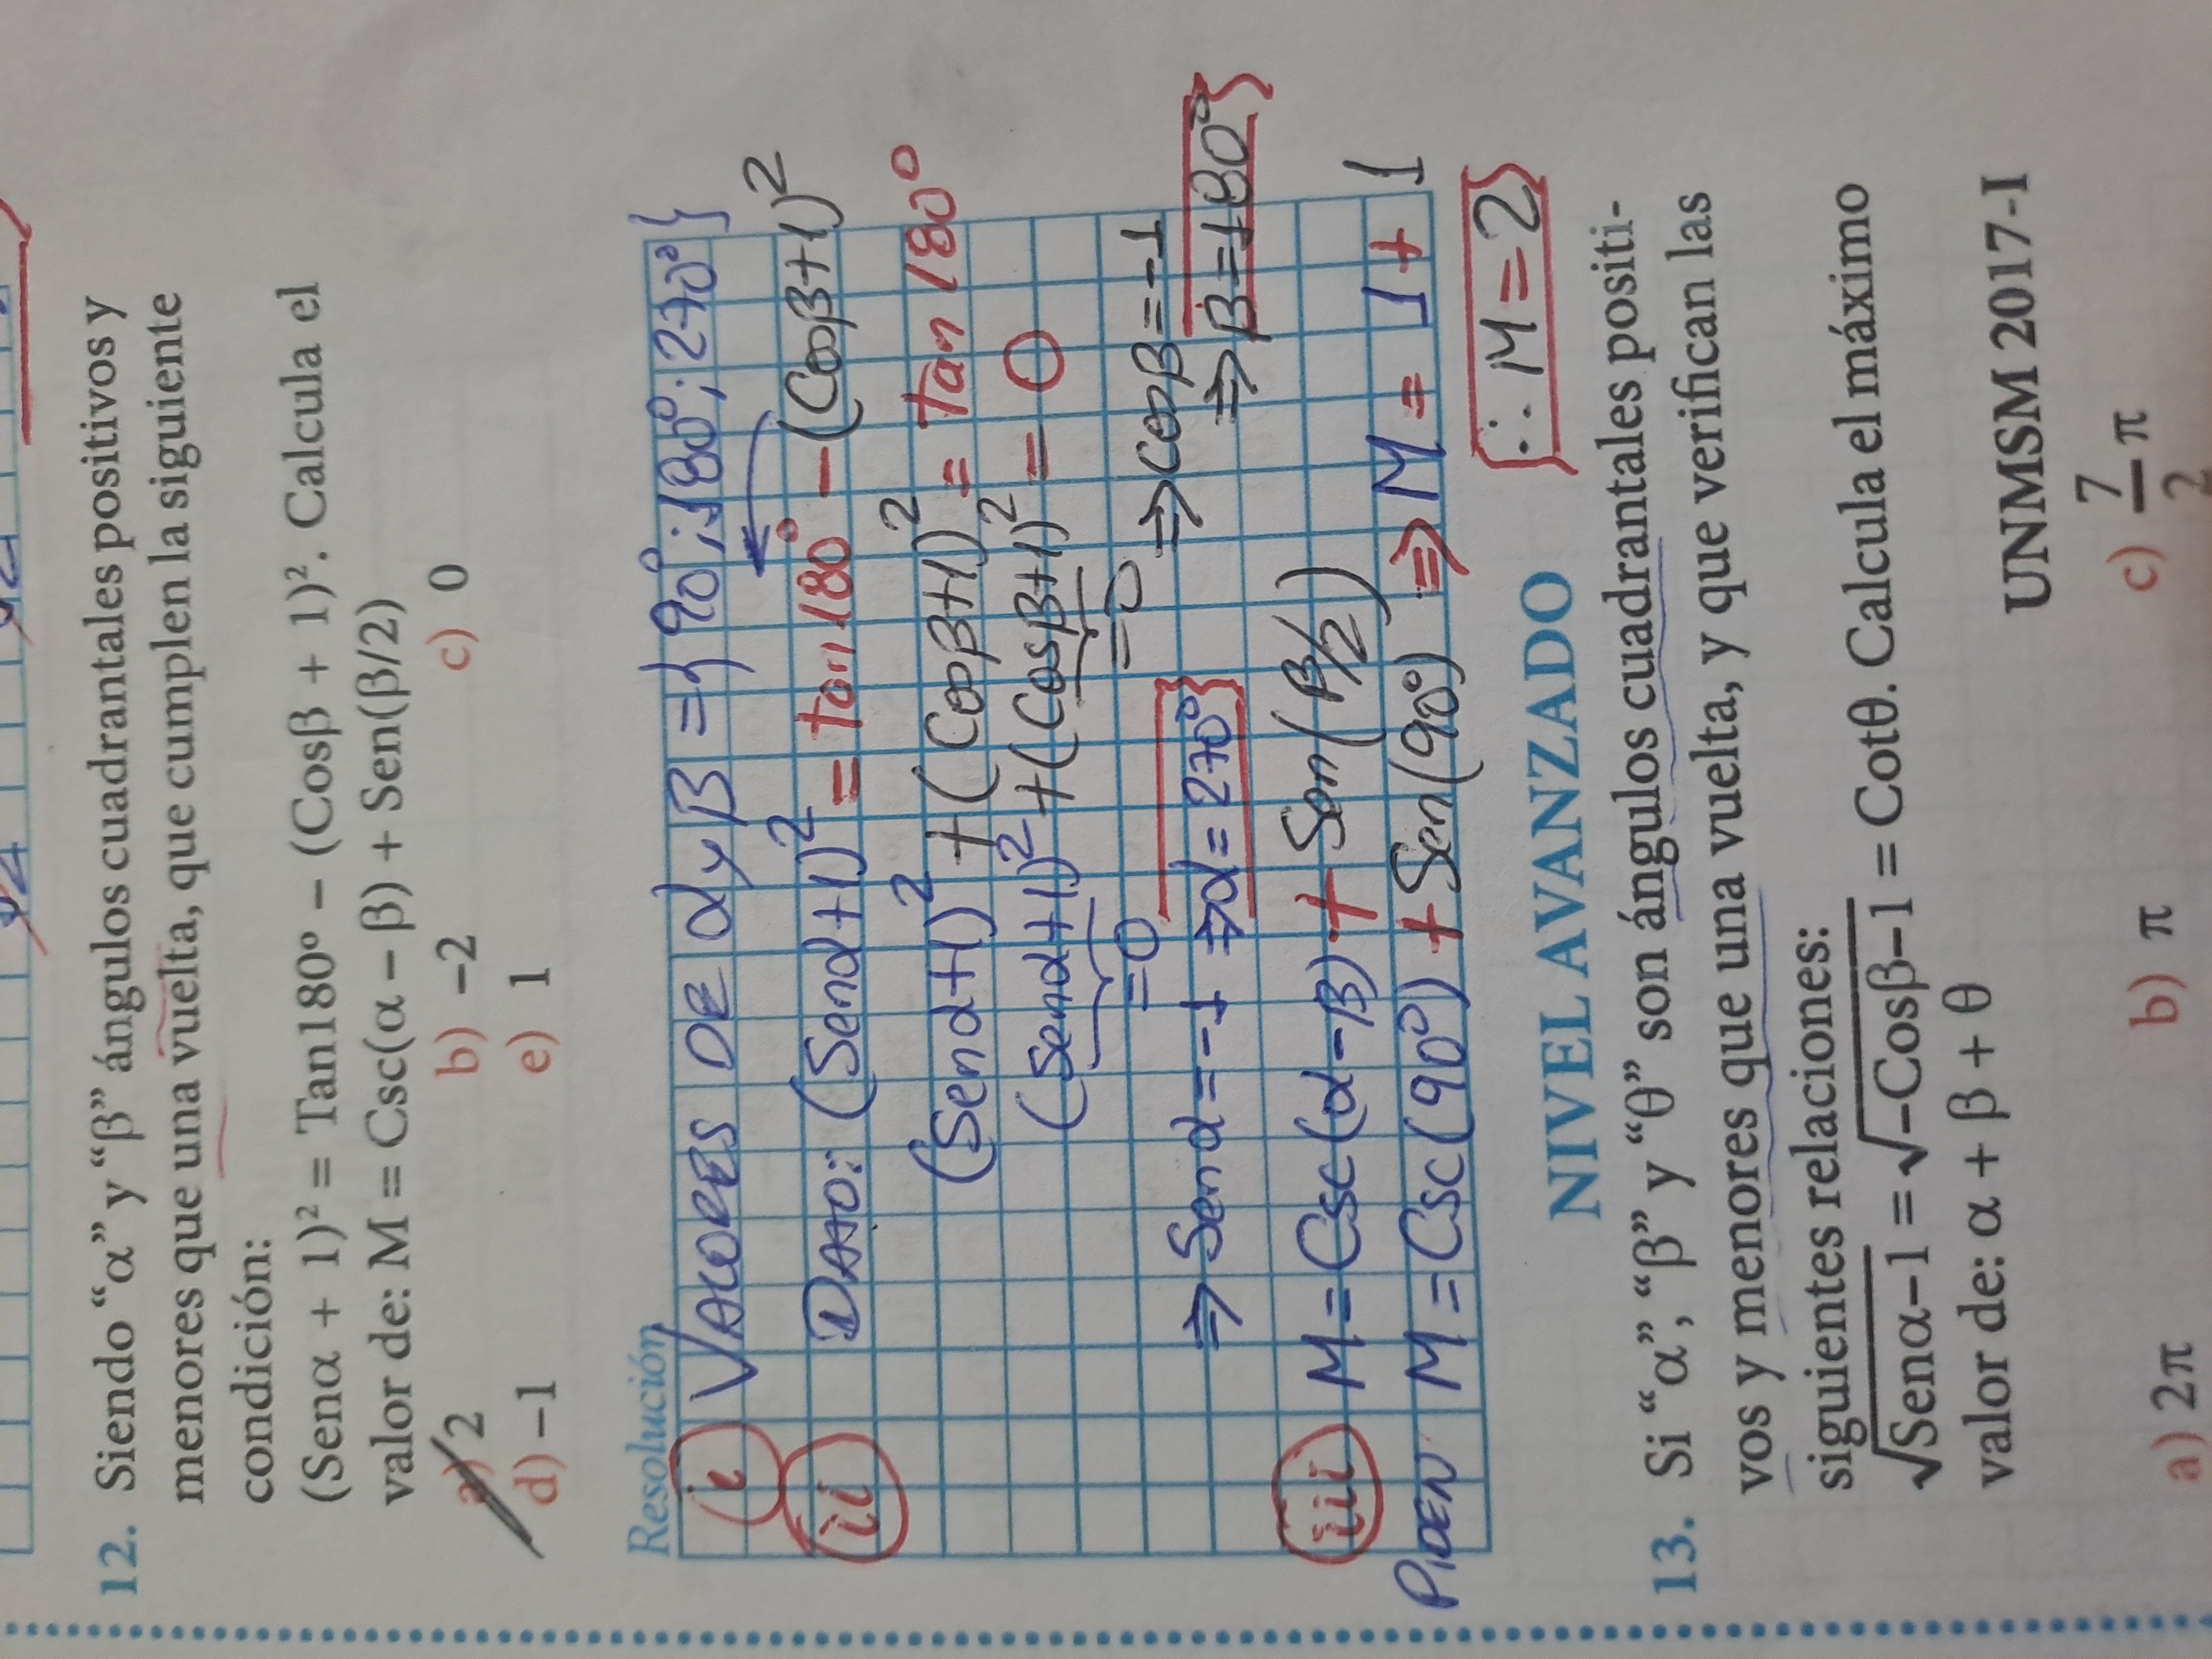 12. Siendo “α” y “β” ángulos cuadrantales positivos y
menores que una vuelta, que cumplen la siguiente
condición:
(Senα + 1)² = Tan180º – (Cosβ + 1)². Calcula el
valor de: M = Csc(α – β) + Sen(β/2)
a) 2 b) –2 c) 0
d) –1 e) 1
Resolución
i VALORES DE α y β = {90°; 180°; 270°}
ii DATO: (Senα+1)² = tan180° – (Cosβ+1)²
(Senα+1)² + (Cosβ+1)² = tan180°
(Senα+1)² + (Cosβ+1)² = 0
=0 =0
⇒ Cosβ = -1
⇒ Senα = -1 ⇒ α = 270°
⇒ β = 180°
iii M = Csc(α-β) + Sen(β/2)
PIDEN M = Csc(90°) + Sen(90°) ⇒ M = 1 + 1
∴ M = 2
NIVEL AVANZADO
13. Si “α”, “β” y “θ” son ángulos cuadrantales positi-
vos y menores que una vuelta, y que verifican las
siguientes relaciones:
√Senα–1 = √–Cosβ–1 = Cotθ. Calcula el máximo
valor de: α + β + θ
UNMSM 2017-I
a) 2π b) π c) 7/2 π